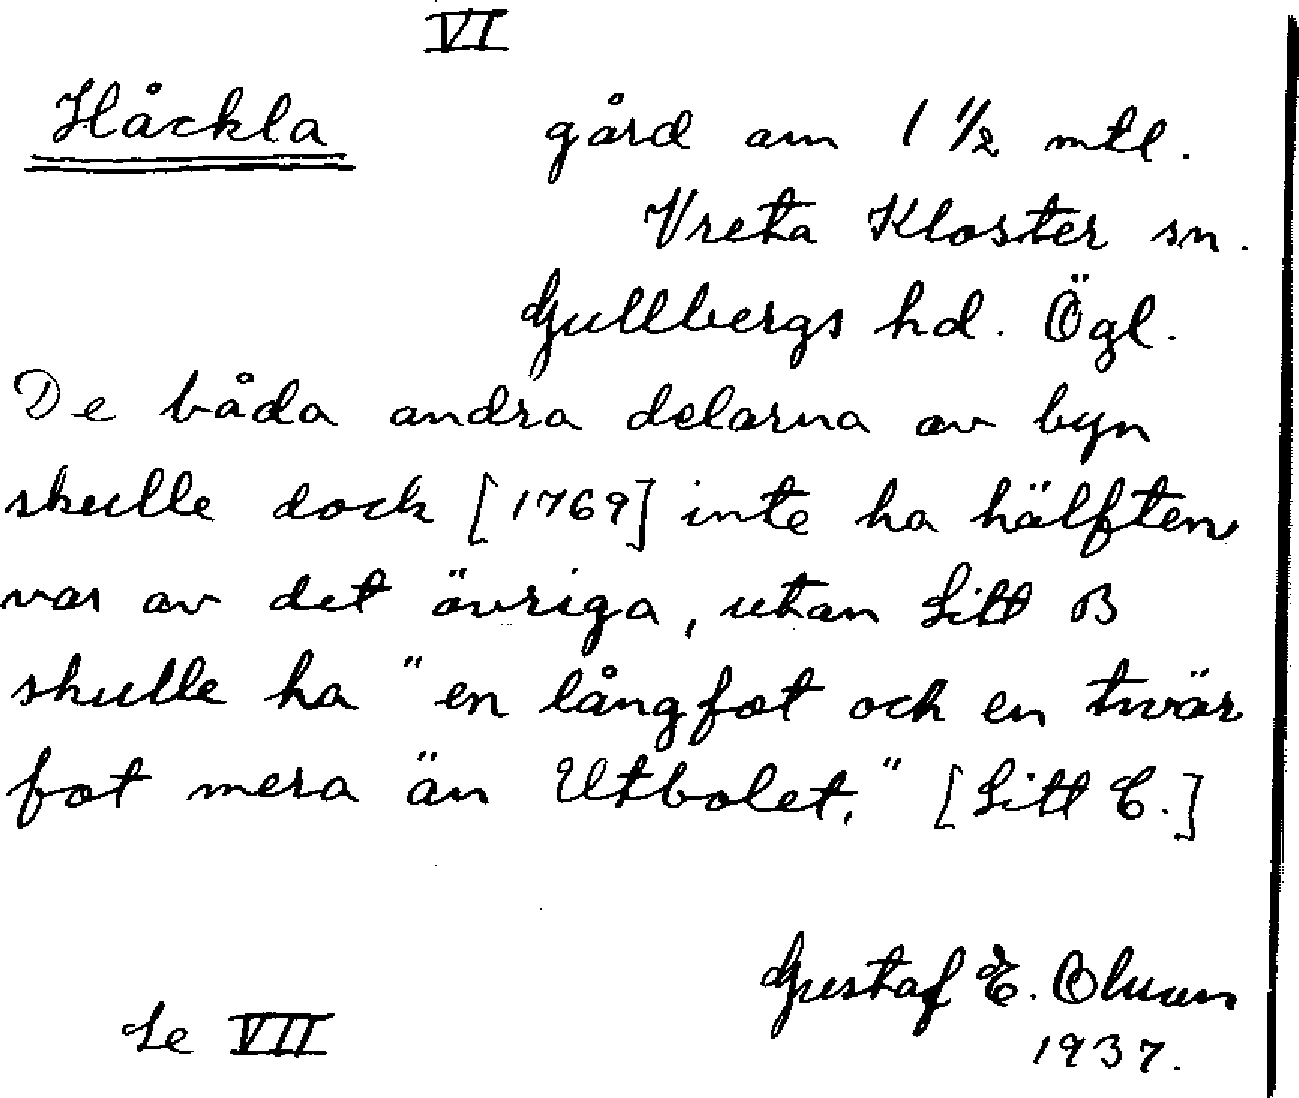 VI
Håckla gård om 1 1/2 mtl.
Vreta Kloster sn.
Gullbergs hd. Ögl.
De båda andra delarna av byn
skulle dock [1769] inte ha hälften
var av det övriga, utan Litt B
skulle ha "en lång fot och en twär
fot mera än Utbolet." [Litt C.]
Gustaf E. Olsson
Se VII
1937.